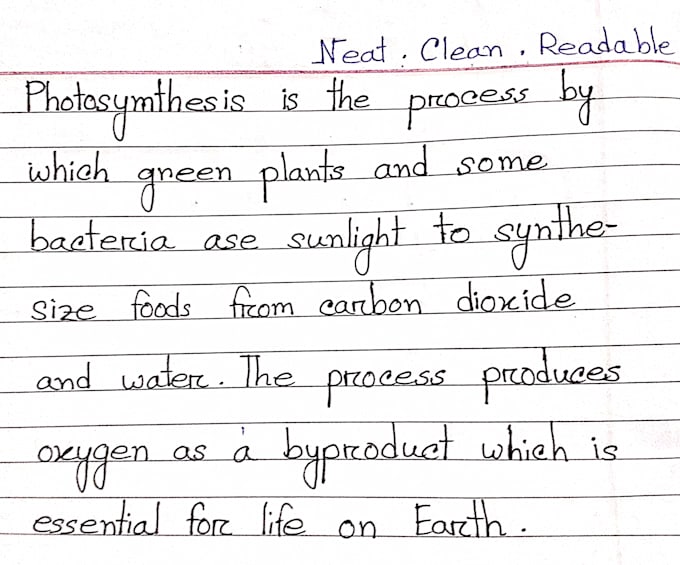 Neat . Clean . Readable
Photosymthesis is the process by
which green plants and some
bacteria ase sunlight to synthe-
size foods from carbon dioxide
and water. The process produces
oxygen as a byproduct which is
essential for life on Earth.